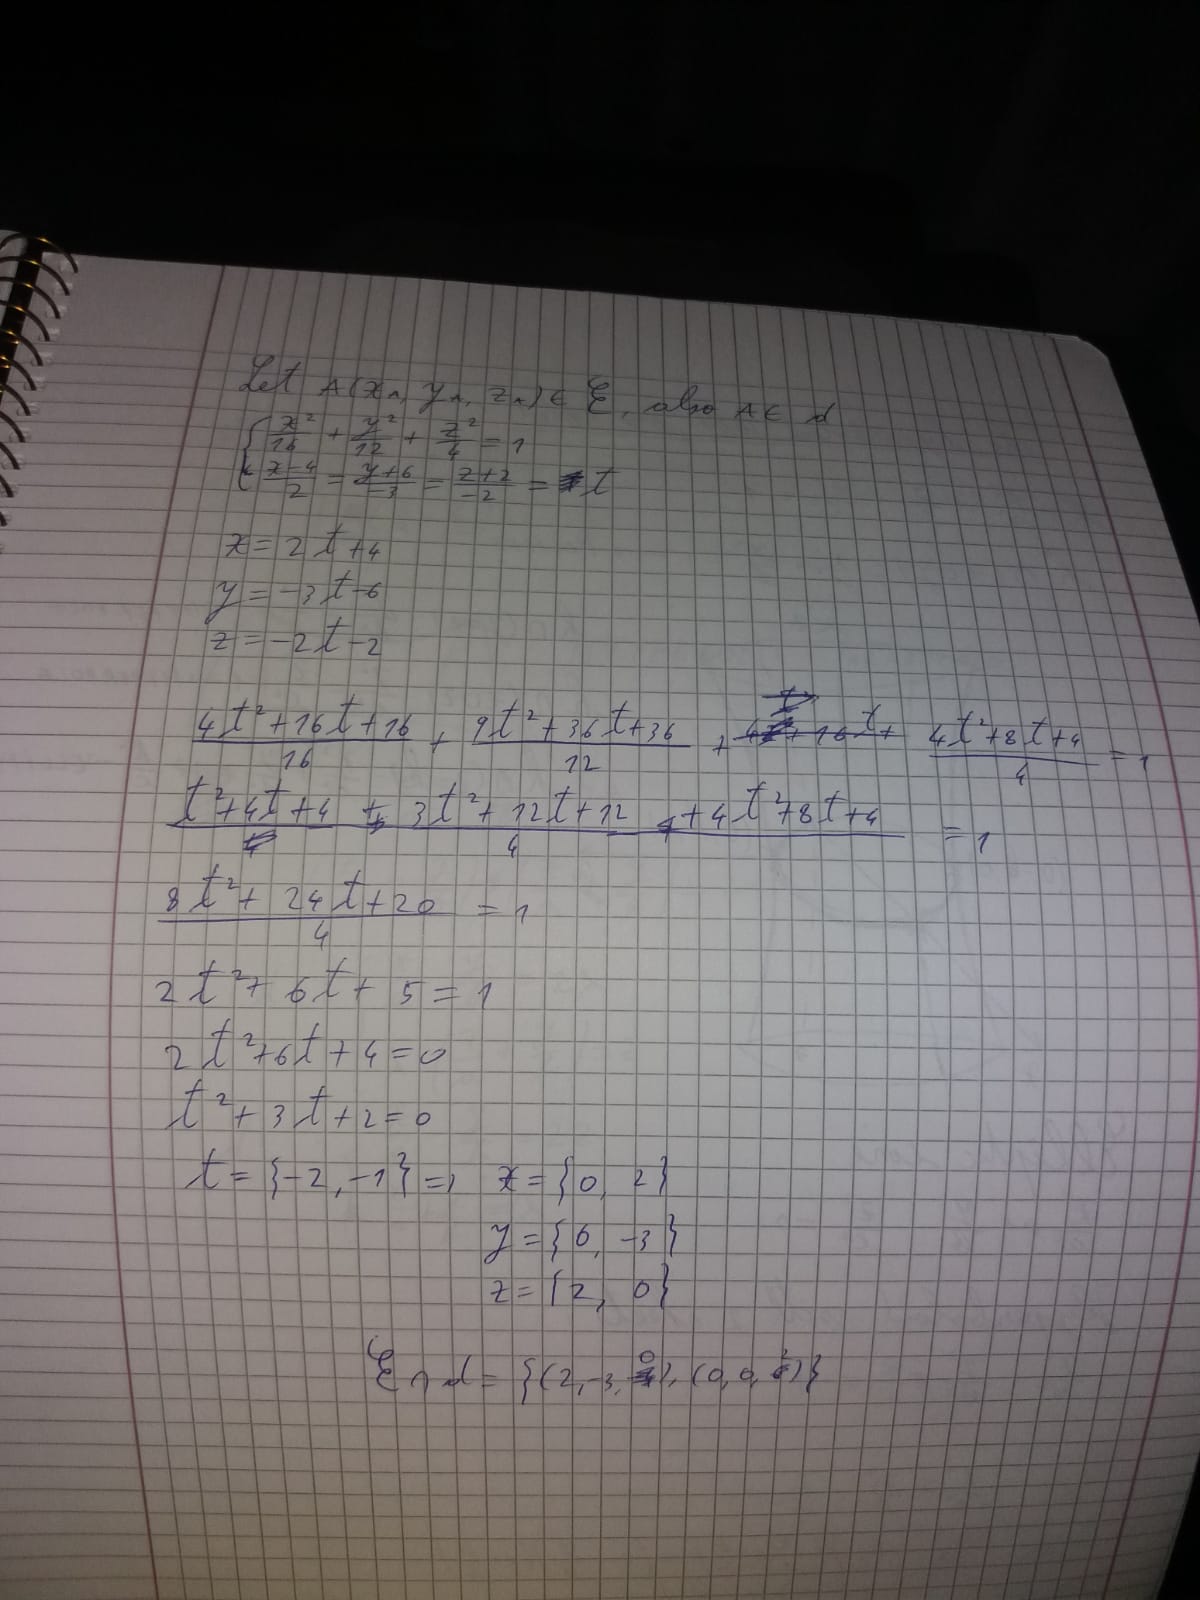 Let A(x₁, y₁, z₁) ∈ E, also A ∈ d
{ x²/16 + y²/12 + z²/4 = 1
x-4/2 = y+6/-3 = z+2/-2 = t
x = 2t+4
y = -3t-6
z = -2t-2
4t²+16t+16/16 + 9t²+36t+36/12 + 4t²+8t+4/4 = 1
t²+4t+4 + 3t²+12t+12 + 4t²+8t+4/4 = 1
8t²+24t+20/4 = 1
2t²+6t+5=1
2t²+6t+4=0
t²+3t+2=0
t={-2,-1} => x={0, 2}
y={0, -3}
z={2, 0}
E ∩ d = {(2,-3,0), (0,0,2)}